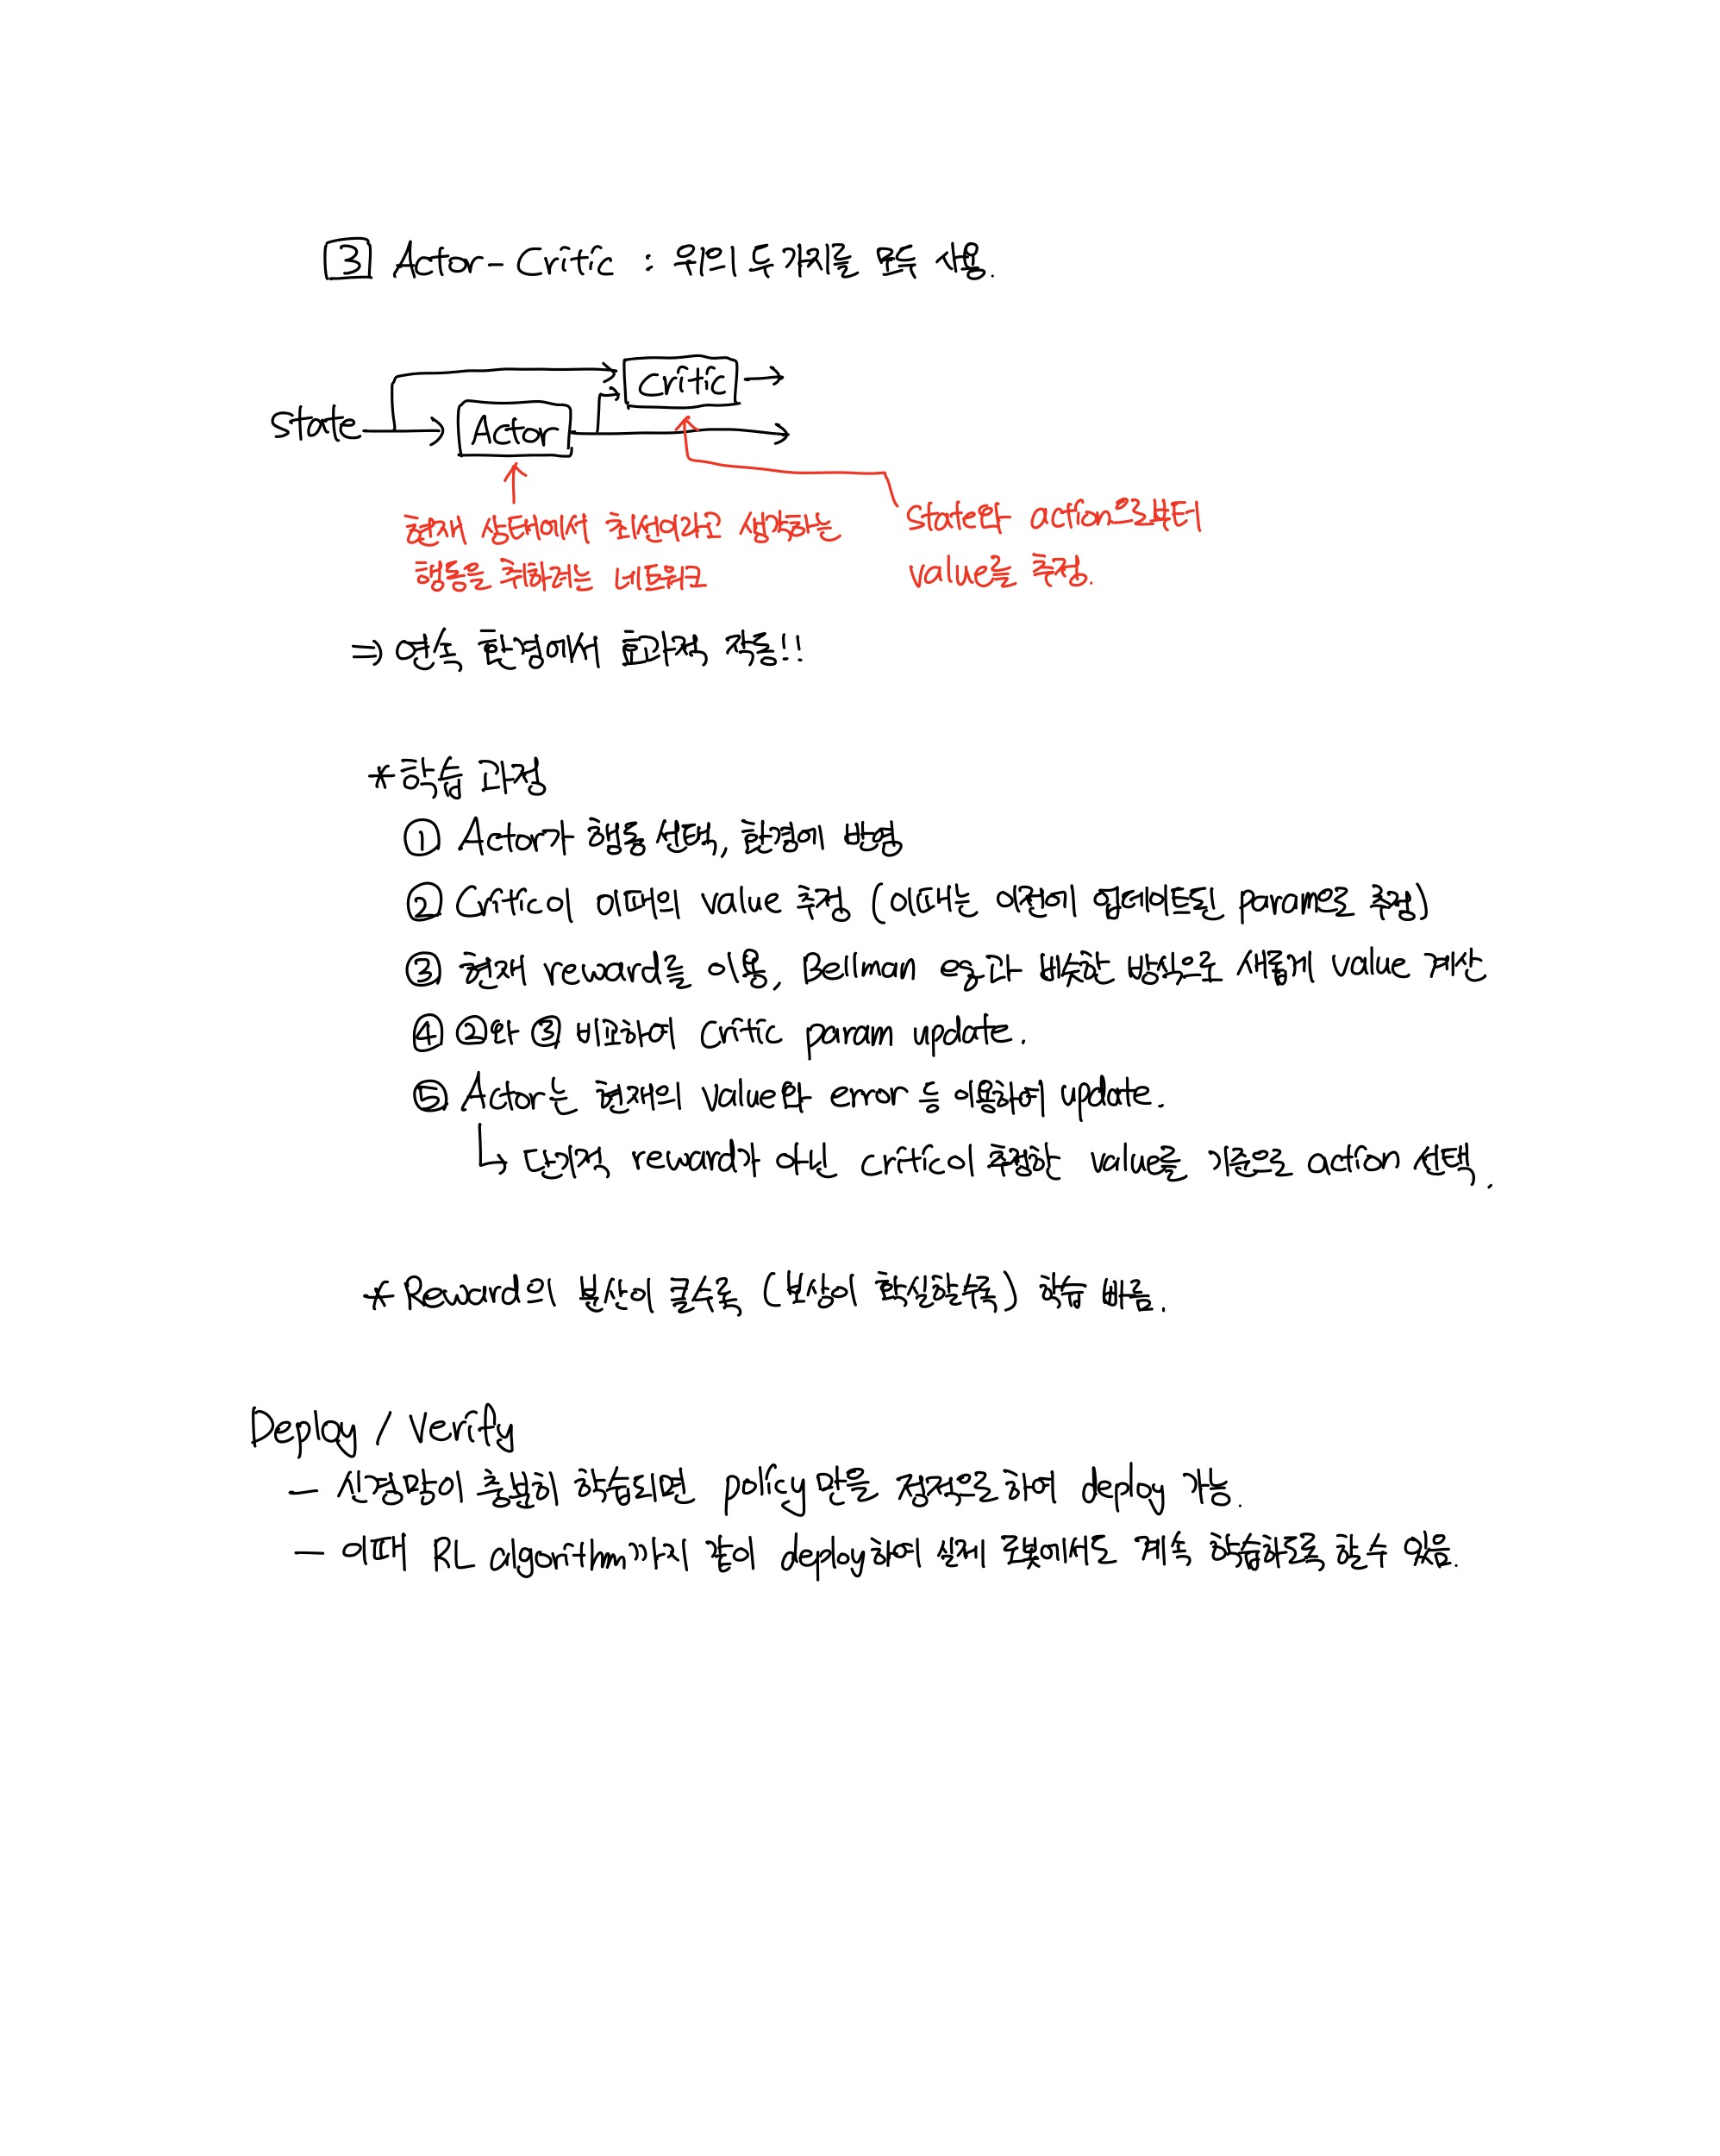 3 Actor - Critic : 위의 두 가지를 모두 사용.
Critic
State
Actor
현재 상태에서 최선이라고 생각하는
행동을 취하려는 네트워크
State와 action으로부터
value를 추정.
⇒ 연속 환경에서 효과적 작동!!
* 학습 과정
① Actor가 행동 선택, 환경에 반영
② Critic이 이때의 value 추정 (이때는 이전에 업데이트된 param으로 추정)
③ 현재 reward를 이용, Bellman eq과 비슷한 방식으로 새롭게 value 계산
④ ②와 ③ 비교하여 Critic param update.
⑤ Actor는 현재의 value와 error 등 이용하여 update.
↳ 단기적 reward가 아닌 critic이 추정한 value를 기준으로 action 선택.
* Reward의 분산이 클수록 (보상이 확실할수록) 학습 빠름.
Deploy / Verify
- 신경망이 충분히 학습되면 policy 만을 정적으로 하여 deploy 가능.
- 이때 RL algorithm까지 같이 deploy하여 실제 로봇에서도 계속 학습하도록 할 수 있음.